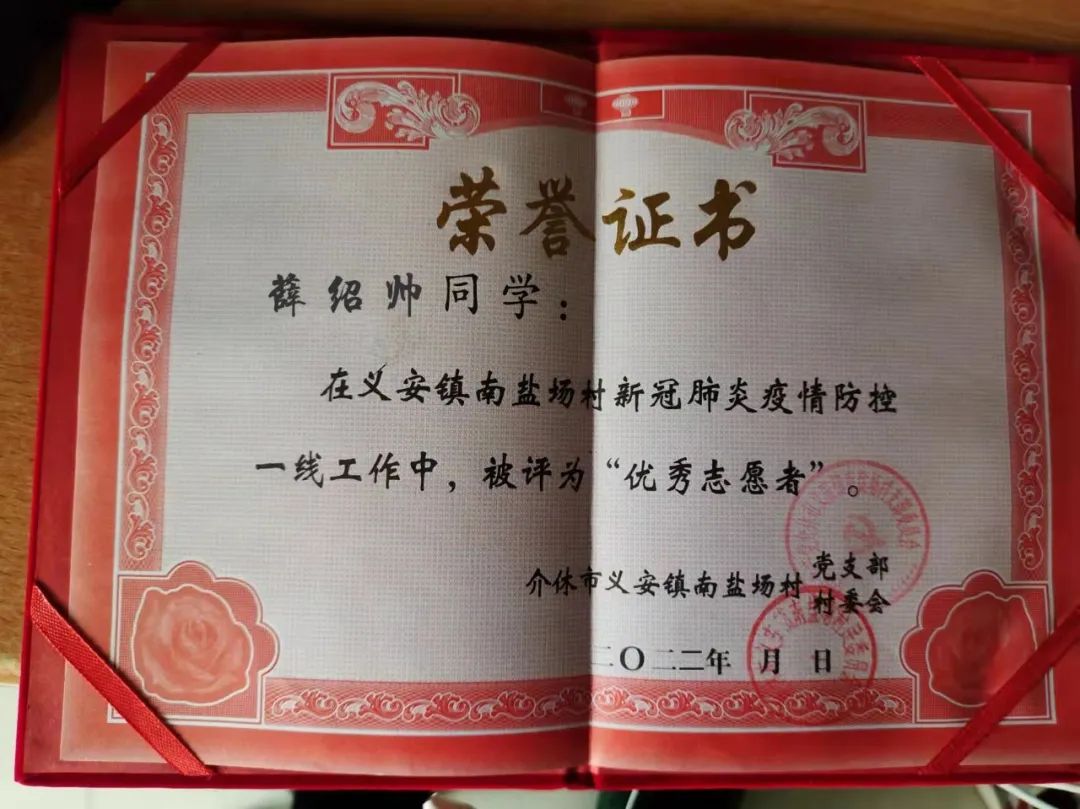 荣誉证书
薛绍帅同学：
在义安镇南盐场村新冠肺炎疫情防控
一线工作中，被评为“优秀志愿者”。
介休市义安镇南盐场村 党支部
村委会
二〇二二年 月 日